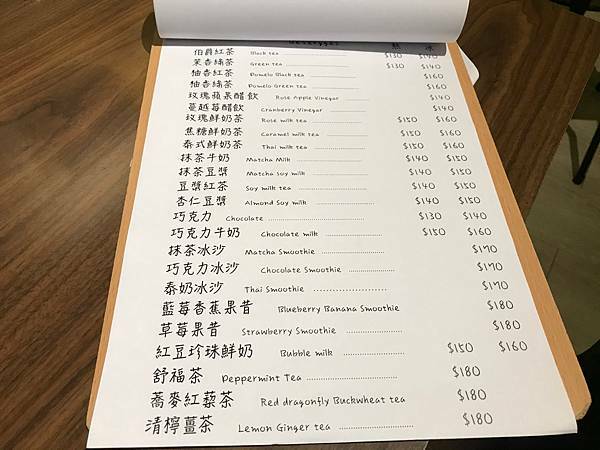 Beverages 熱 冰
伯爵紅茶 Black tea $130 $140
茉香綠茶 Green tea $130 $140
柚香紅茶 Pomelo Black tea $160
柚香綠茶 Pomelo Green tea $160
玫瑰蘋果醋飲 Rose Apple Vinegar $140
蔓越莓醋飲 Cranberry Vinegar $140
玫瑰鮮奶茶 Rose milk tea $150 $160
焦糖鮮奶茶 Caramel milk tea $150 $160
泰式鮮奶茶 Thai milk tea $150 $160
抹茶牛奶 Matcha Milk $140 $150
抹茶豆漿 Matcha soy milk $140 $150
豆漿紅茶 Soy milk tea $140 $150
杏仁豆漿 Almond Soy milk $140 $150
巧克力 Chocolate $130 $140
巧克力牛奶 Chocolate milk $150 $160
抹茶冰沙 Matcha Smoothie $170
巧克力冰沙 Chocolate Smoothie $170
泰奶冰沙 Thai Smoothie $170
藍莓香蕉果昔 Blueberry Banana Smoothie $180
草莓果昔 Strawberry Smoothie $180
紅豆珍珠鮮奶 Bubble milk $150 $160
舒福茶 Peppermint Tea $180
蕎麥紅藜茶 Red dragonfly Buckwheat tea $180
清檸薑茶 Lemon Ginger tea $180